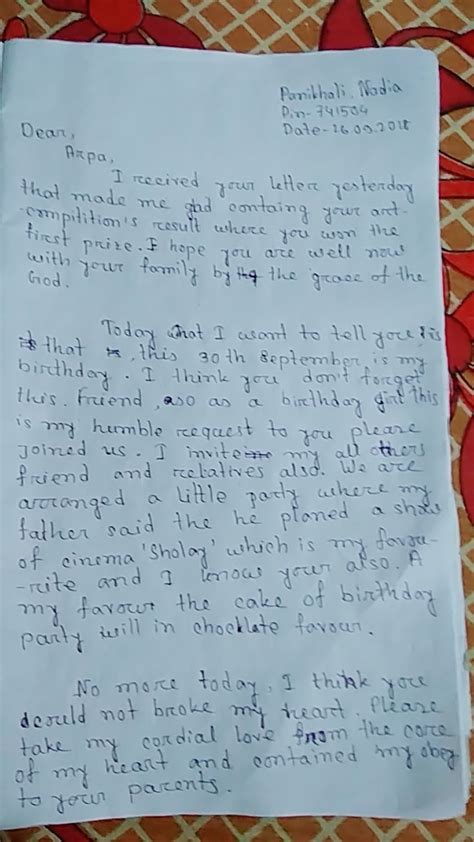 Panikhali, Nadia
Pin- 741504
Date- 26.09.2018
Dear,
Arpa,
I recived your letter yesterday
that made me glad containg your art-
compilition's result where you won the
first prize. I hope you are well now
with your family by the grace of the
God.
Today what I want to tell you is
that, this 30th September is my
birthday. I think you don't forget
this. Friend, so as a birthday girl this
is my humble request to you please
joined us. I invite my all others
friend and relatives also. We are
arranged a little party where my
father said the he planed a show
of cinema 'Sholay' which is my favou-
-rite and I know your also. A
my favour the cake of birthday
party will in chocklate favour.
No more today, I think you
could not broke my heart. Please
take my cordial love from the core
of my heart and contained my obey
to your parents.